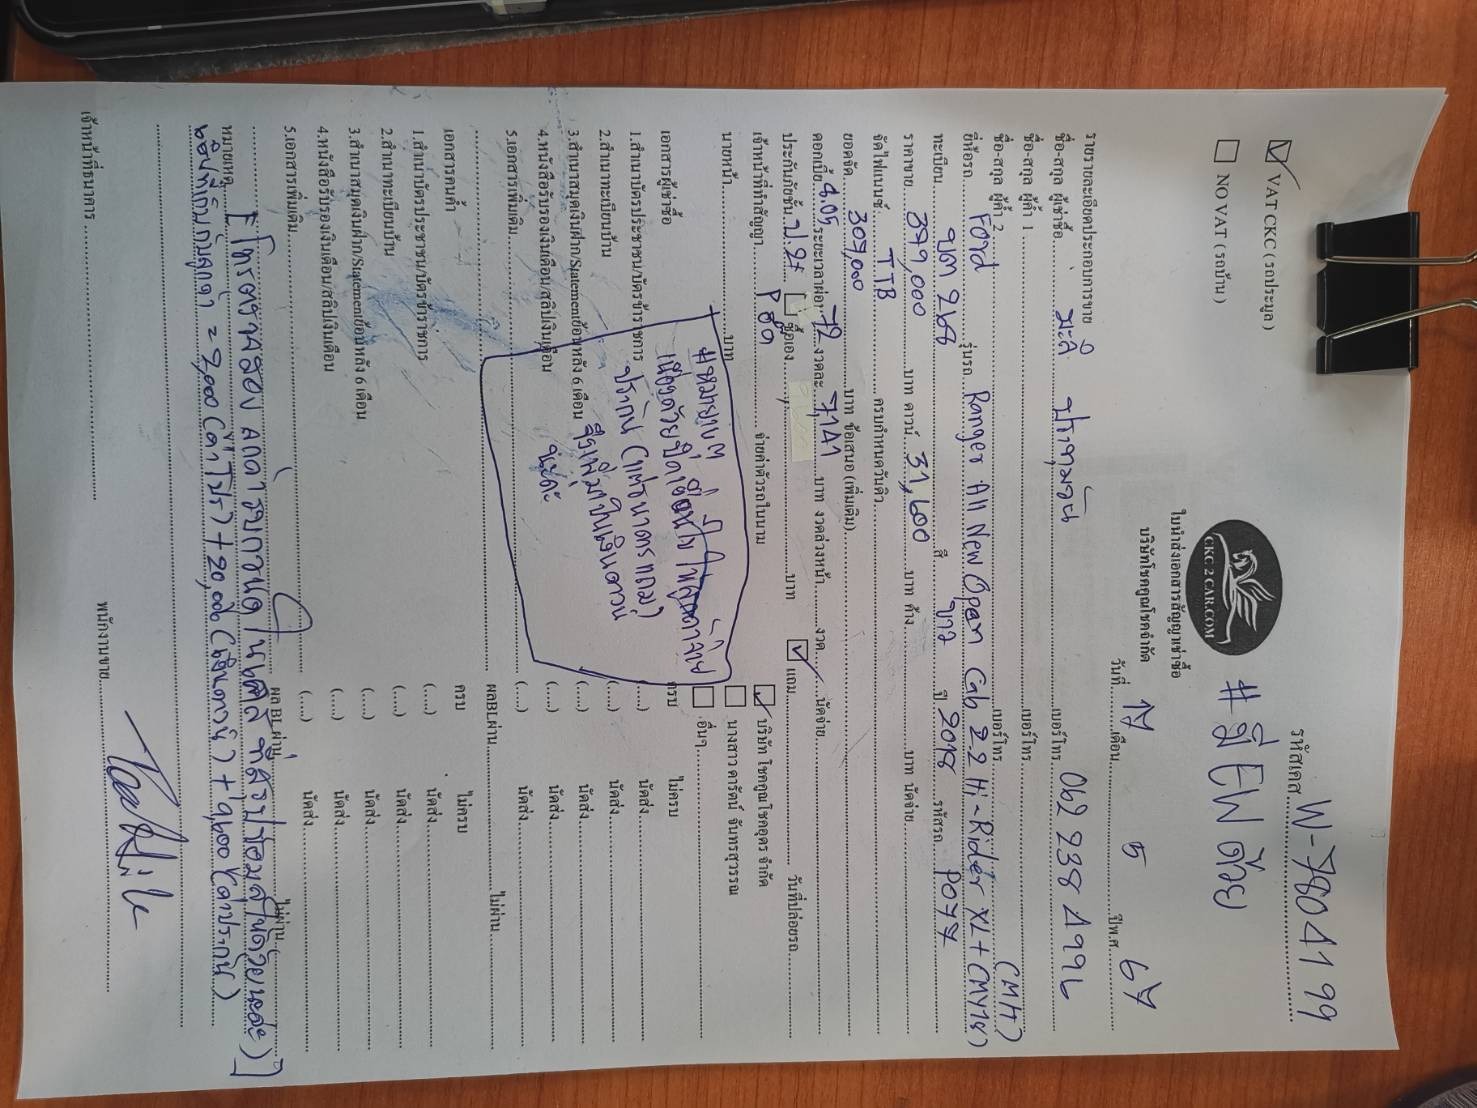 รหัสเคส W-7804199
VAT CKC ( รถประมูล )
NO VAT ( รถบ้าน )
CKC 2 CAR.COM
# มี EW ด้วย
ใบนำส่งเอกสารสัญญาเช่าซื้อ
บริษัทโชคคูณโชคจำกัด
วันที่ 17 เดือน 5 ปีพ.ศ. 67
รายรายละเอียดประกอบการขาย
ชื่อ-สกุล ผู้เช่าซื้อ มะลิ เบอร์โทร 062 238 4996
ชื่อ-สกุล ผู้ค้ำ 1 เบอร์โทร
ชื่อ-สกุล ผู้ค้ำ 2 เบอร์โทร
ยี่ห้อรถ Ford รุ่นรถ Ranger All New Open Cab 2.2 Hi-Rider XL+ (M/T)
ทะเบียน 268 สี ขาว ปี 2018 รหัสรถ P077
ราคาขาย บาท ดาวน์ 31,600 บาท ค้าง บาท นัดจ่าย
จัดไฟแนนซ์ TTB ครบกำหนดวันคิว
ยอดจัด 307,000 บาท ข้อเสนอ (เพิ่มเติม)
ดอกเบี้ย 4.05 ระยะเวลาผ่อน 72 งวดละ 7,141 บาท งวดล่วงหน้า งวด นัดจ่าย
ประกันภัยชั้น ป.2+ ซื้อเอง บาท แถม วันที่ปล่อยรถ
เจ้าหน้าที่ทำสัญญา จ่ายค่าตัวรถในนาม บริษัท โชคคูณโชคอุดร จำกัด
นายหน้า บาท นางสาว ดารัตน์ จันทรสุวรรณ
อื่นๆ
# หมายเหตุ
เนื่องด้วยปิดเงื่อนไข ให้ลูกค้าจ่าย
ประกัน (แต่ธนาคารแถม)
จึงเพิ่มในเงินดาวน์
นะคะ
เอกสารผู้เช่าซื้อ ครบ ไม่ครบ
1.สำเนาบัตรประชาชน/บัตรข้าราชการ (....) นัดส่ง
2.สำเนาทะเบียนบ้าน (....) นัดส่ง
3.สำเนาสมุดเงินฝาก/Statementย้อนหลัง 6 เดือน (....) นัดส่ง
4.หนังสือรับรองเงินเดือน/สลิปเงินเดือน (....) นัดส่ง
5.เอกสารเพิ่มเติม (....) นัดส่ง
ผลBLผ่าน ไม่ผ่าน
เอกสารคนค้ำ ครบ ไม่ครบ
1.สำเนาบัตรประชาชน/บัตรข้าราชการ (....) นัดส่ง
2.สำเนาทะเบียนบ้าน (....) นัดส่ง
3.สำเนาสมุดเงินฝาก/Statementย้อนหลัง 6 เดือน (....) นัดส่ง
4.หนังสือรับรองเงินเดือน/สลิปเงินเดือน (....) นัดส่ง
5.เอกสารเพิ่มเติม (....) นัดส่ง
ผลBLผ่าน ไม่ผ่าน
หมายเหตุ
= 2,000 + 20,000 (เงินดาวน์) + 9,600 (ค่าประกัน)
เจ้าหน้าที่ธนาคาร พนักงานขาย